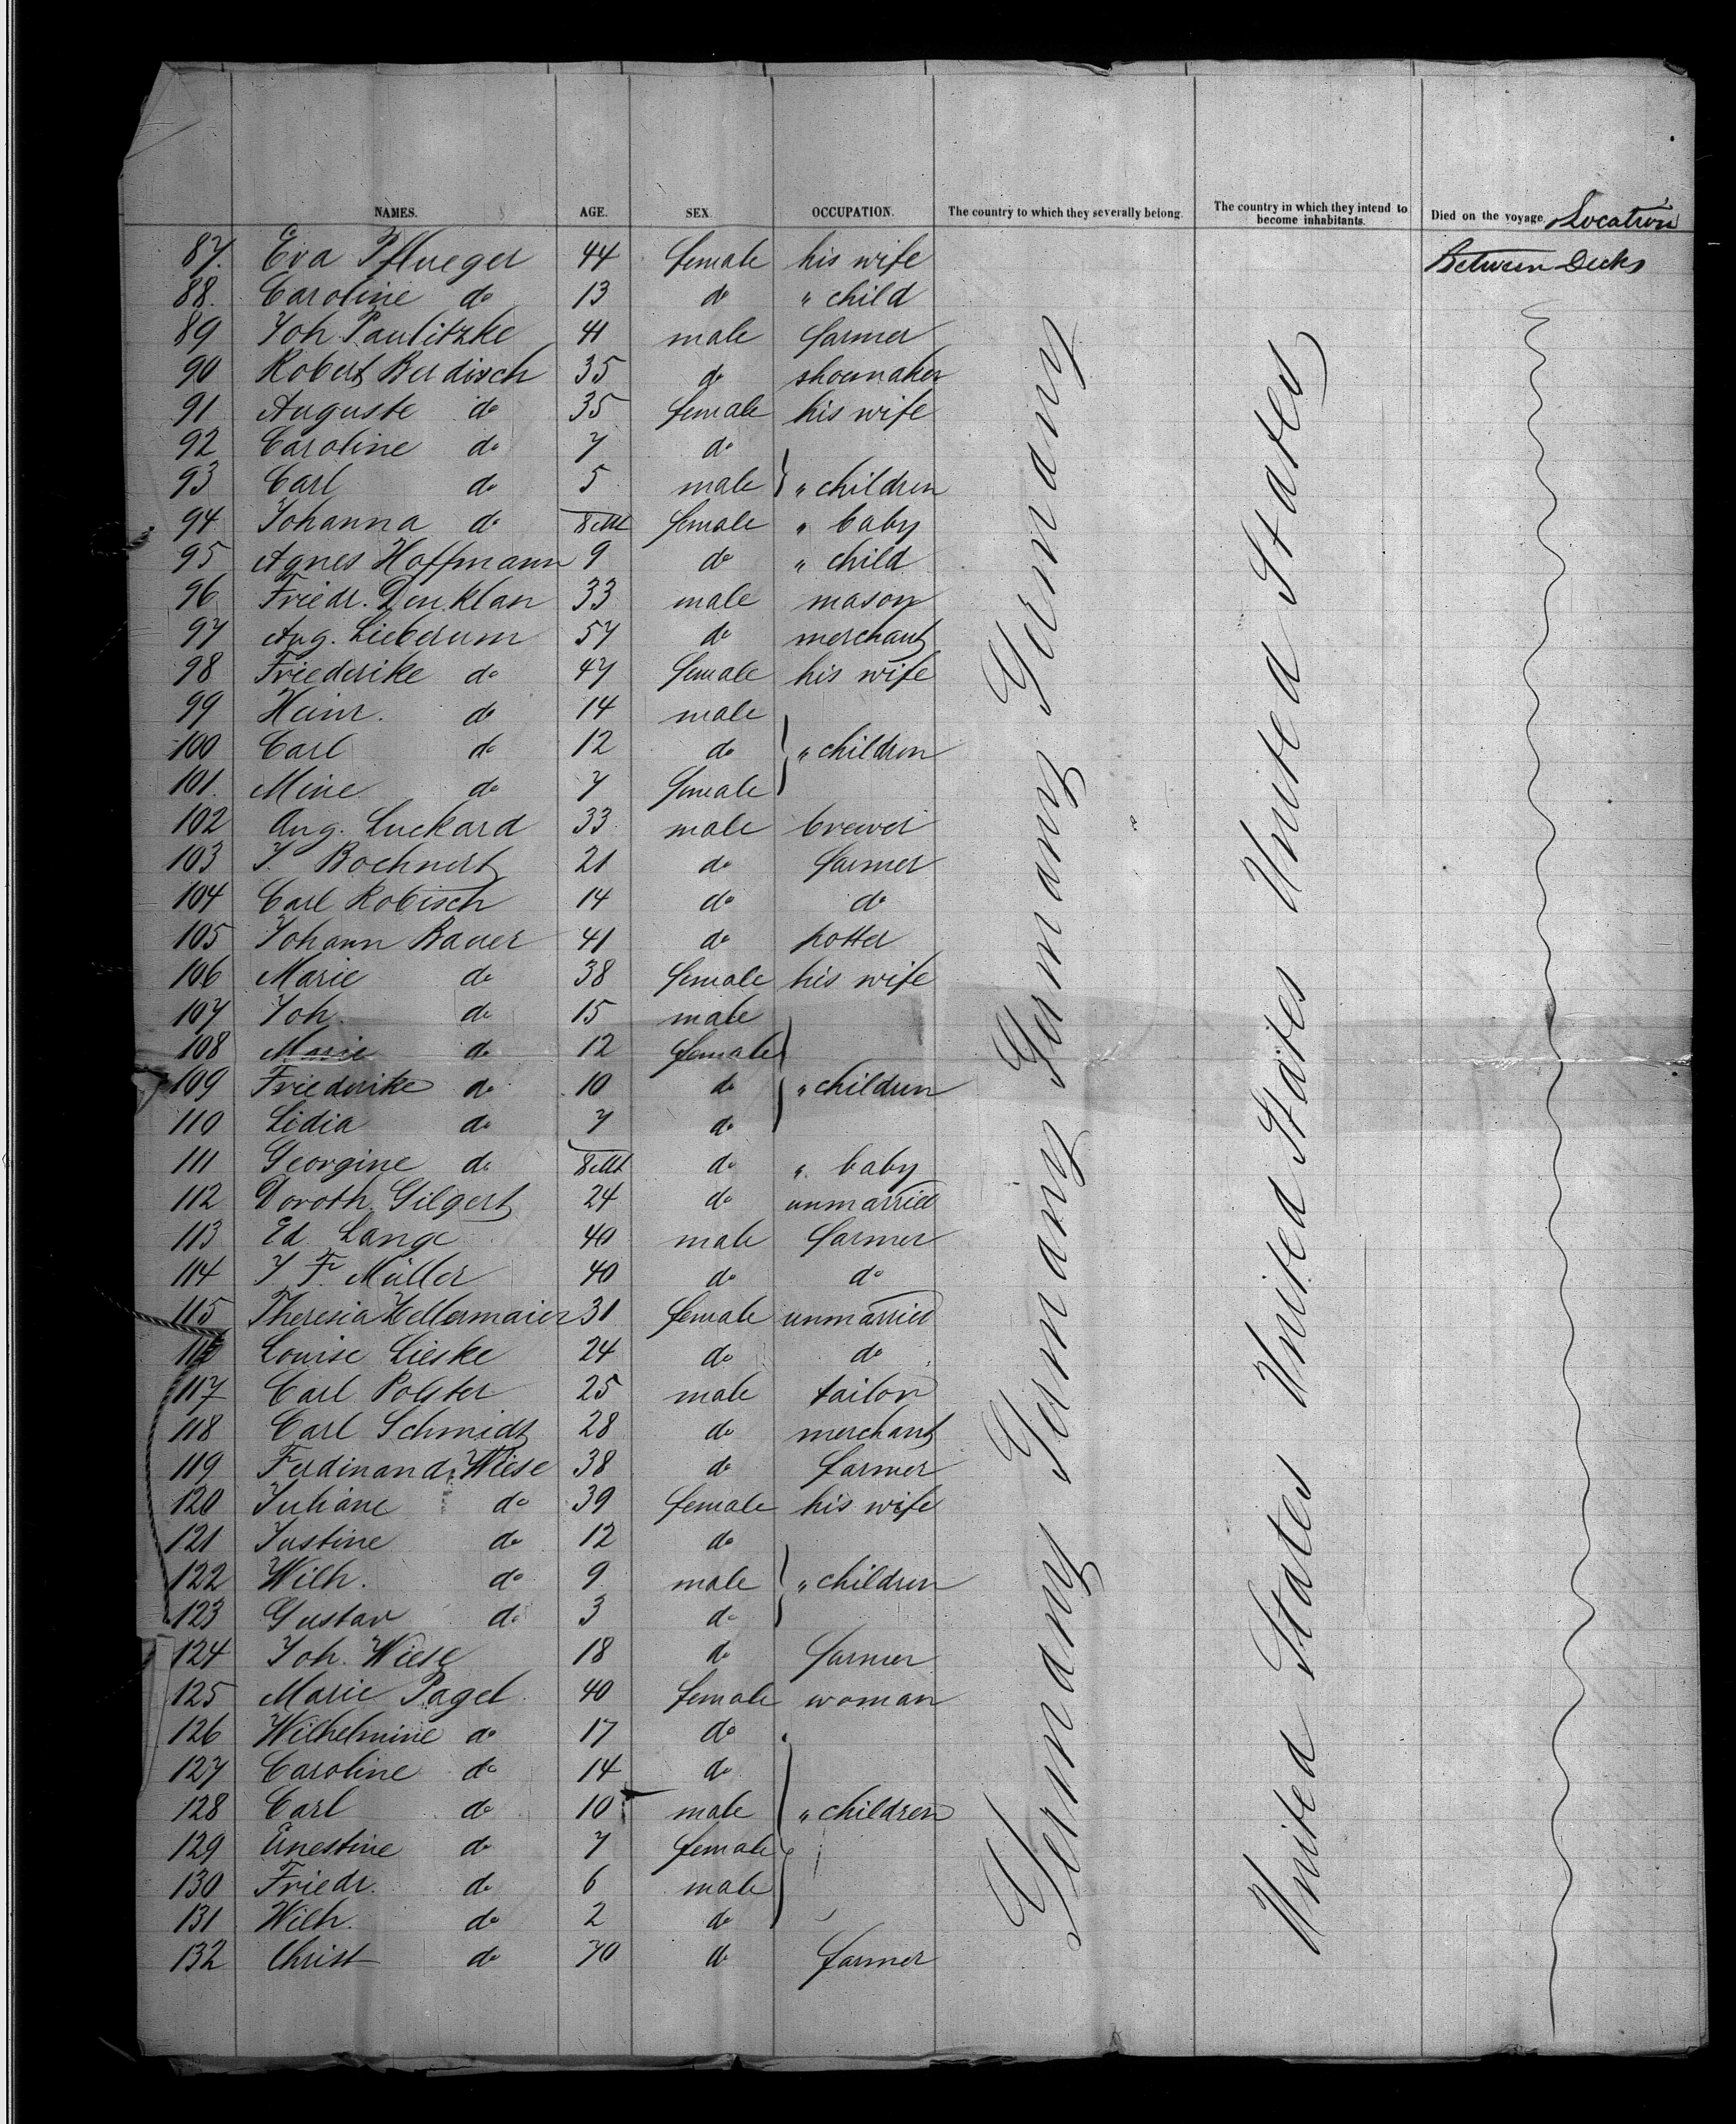 NAMES. AGE. SEX. OCCUPATION. The country to which they severally belong. The country in which they intend to become inhabitants. Died on the voyage. Location
87. Eva Pflueger 44 female his wife Between Decks
88. Caroline do 13 do " child
89 Joh. Paulitzke 41 male farmer
90 Robert Berdisch 35 do shoemaker
91 Auguste do 35 female his wife
92 Caroline do 7 do
93 Carl do 5 male " children
94 Johanna do 8 Mt female " baby
95 Agnes Hoffmann 9 do " child
96 Friedr. Denklan 33 male mason
97 Aug. Lieberum 57 do merchant
98 Friederike do 47 female his wife
99 Heinr. do 14 male
100 Carl do 12 do " children
101. Mine do 7 female
102 Aug. Luckard 33 male brewer
103 J. Bochnert 21 do farmer
104 Carl Robisch 14 do do
105 Johann Bauer 41 do potter
106 Marie do 38 female his wife
107 Joh. do 15 male
108 Marie do 12 female
109 Friederike do 10 do " children
110 Lidia do 7 do
111 Georgine do 8 Mt do " baby
112 Doroth. Gilgert 24 do unmarried
113 Ed. Lange 40 male farmer
114 J. F. Müller 40 do do
115 Theresia Hellermaier 31 female unmarried
116 Louise Lieske 24 do do
117 Carl Polster 25 male tailor
118 Carl Schmidt 28 do merchant
119 Ferdinand Wiese 38 do farmer
120 Juliane do 39 female his wife
121 Justine do 12 do
122 Wilh. do 9 male " children
123 Gustav do 3 do
124 Joh. Wiese 18 do farmer
125 Marie Pagel 40 female woman
126 Wilhelmine do 17 do
127 Caroline do 14 do
128 Carl do 10 male " children
129 Ernestine do 7 female
130 Friedr. do 6 male
131 Wilh. do 2 do
132 Christ do 70 do farmer
Germany Germany Germany Germany
United States United States United States